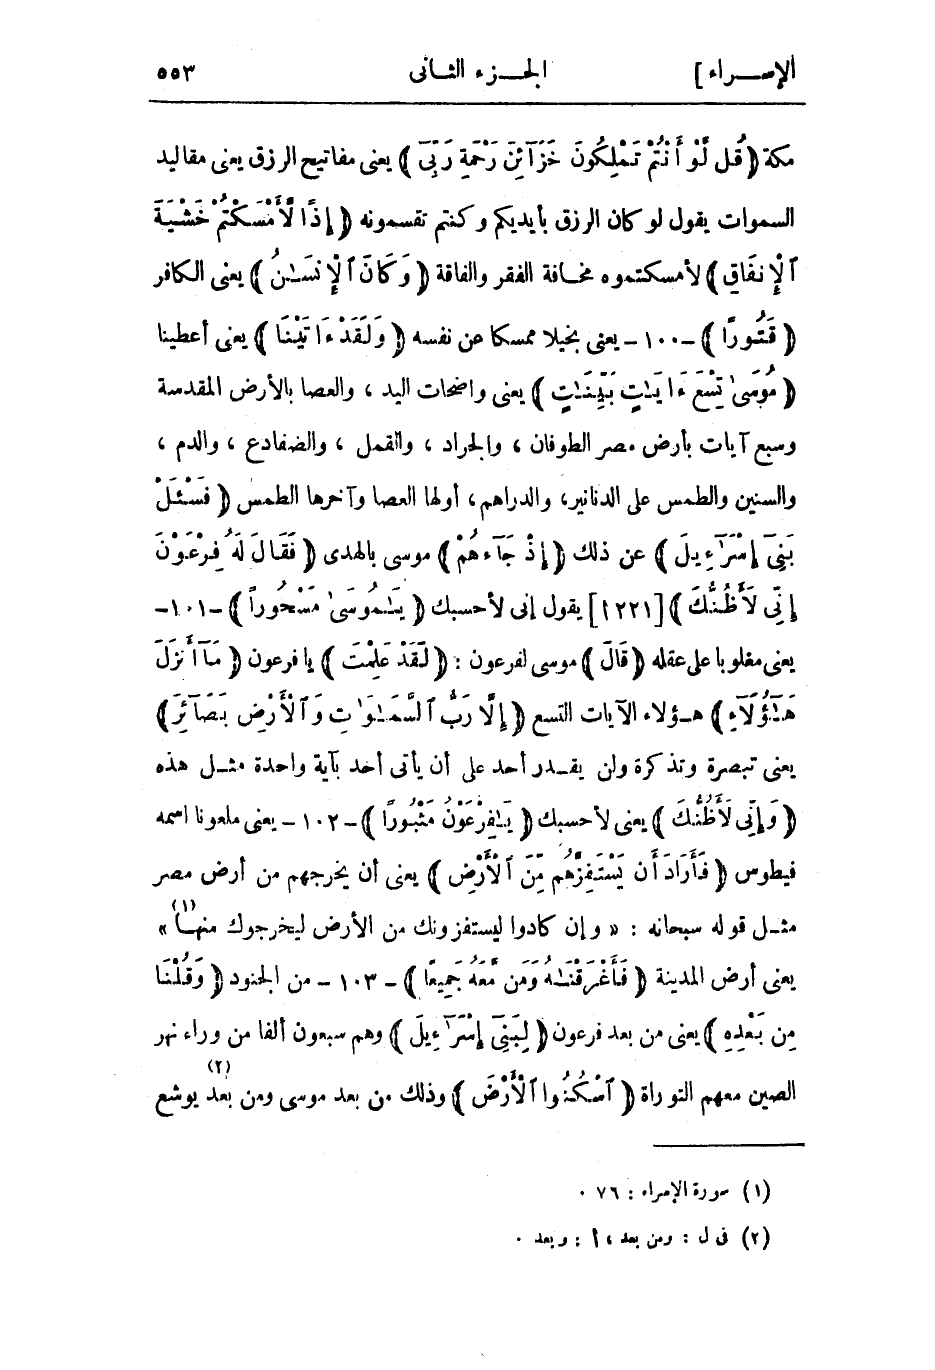 الإسراء]
الجزء الثانى
٥٥٣
مكة ﴿ قُل لَّوْ أَنتُمْ تَمْلِكُونَ خَزَآئِنَ رَحْمَةِ رَبِّىٓ ﴾ يعنى مفاتيح الرزق يعنى مقاليد
السموات يقول لو كان الرزق بأيديكم وكنتم تقسمونه ﴿ إِذًا لَّأَمْسَكْتُمْ خَشْيَةَ
ٱلْإِنفَاقِ ﴾ لأمسكتموه مخافة الفقر والفاقة ﴿ وَكَانَ ٱلْإِنسَـٰنُ ﴾ يعنى الكافر
﴿ قَتُورًا ﴾ -١٠٠- يعنى بخيلا ممسكا عن نفسه ﴿ وَلَقَدْ ءَاتَيْنَا ﴾ يعنى أعطينا
﴿ مُوسَىٰ تِسْعَ ءَايَـٰتٍ بَيِّنَـٰتٍ ﴾ يعنى واضحات اليد ، والعصا بالأرض المقدسة
وسبع آيات بأرض مصر الطوفان ، والجراد ، والقمل ، والضفادع ، والدم ،
والسنين والطمس على الدنانير، والدراهم، أولها العصا وآخرها الطمس ﴿ فَسْـَٔلْ
بَنِىٓ إِسْرَٰٓءِيلَ ﴾ عن ذلك ﴿ إِذْ جَآءَهُمْ ﴾ موسى بالهدى ﴿ فَقَالَ لَهُۥ فِرْعَوْنُ
إِنِّى لَأَظُنُّكَ ﴾ [٢٢١أ] يقول إنى لأحسبك ﴿ يَـٰمُوسَىٰ مَسْحُوراً ﴾ -١٠١-
يعنى مغلوبا على عقله ﴿ قَالَ ﴾ موسى لفرعون : ﴿ لَقَدْ عَلِمْتَ ﴾ يا فرعون ﴿ مَآ أَنزَلَ
هَـٰٓؤُلَآءِ ﴾ هـؤلاء الآيات التسع ﴿ إِلَّا رَبُّ ٱلسَّمَـٰوَٰتِ وَٱلْأَرْضِ بَصَآئِرَ ﴾
يعنى تبصرة وتذكرة ولن يقـدر أحد على أن يأتى أحد بآية واحدة مثـل هذه
﴿ وَإِنِّى لَأَظُنُّكَ ﴾ يعنى لأحسبك ﴿ يَـٰفِرْعَوْنُ مَثْبُورًا ﴾ -١٠٢- يعنى ملعونا اسمه
فيطوس ﴿ فَأَرَادَ أَن يَسْتَفِزَّهُم مِّنَ ٱلْأَرْضِ ﴾ يعنى أن يخرجهم من أرض مصر
مثـل قوله سبحانه : « وإن كادوا ليستفزونك من الأرض ليخرجوك منهـا (١) »
يعنى أرض المدينة ﴿ فَأَغْرَقْنَـٰهُ وَمَن مَّعَهُۥ جَمِيعًا ﴾ -١٠٣- من الجنود ﴿ وَقُلْنَا
مِن بَعْدِهِ ﴾ يعنى من بعد فرعون ﴿ لِبَنِىٓ إِسْرَٰٓءِيلَ ﴾ وهم سبعون ألفا من وراء نهر
الصين معهم التوراة ﴿ ٱسْكُنُوا ٱلْأَرْضَ ﴾ وذلك من بعد موسى ومن بعد (٢) يوشع
(١) سورة الإسراء : ٧٦ .
(٢) فى ل : ومن بعد ، أ : وبعد .